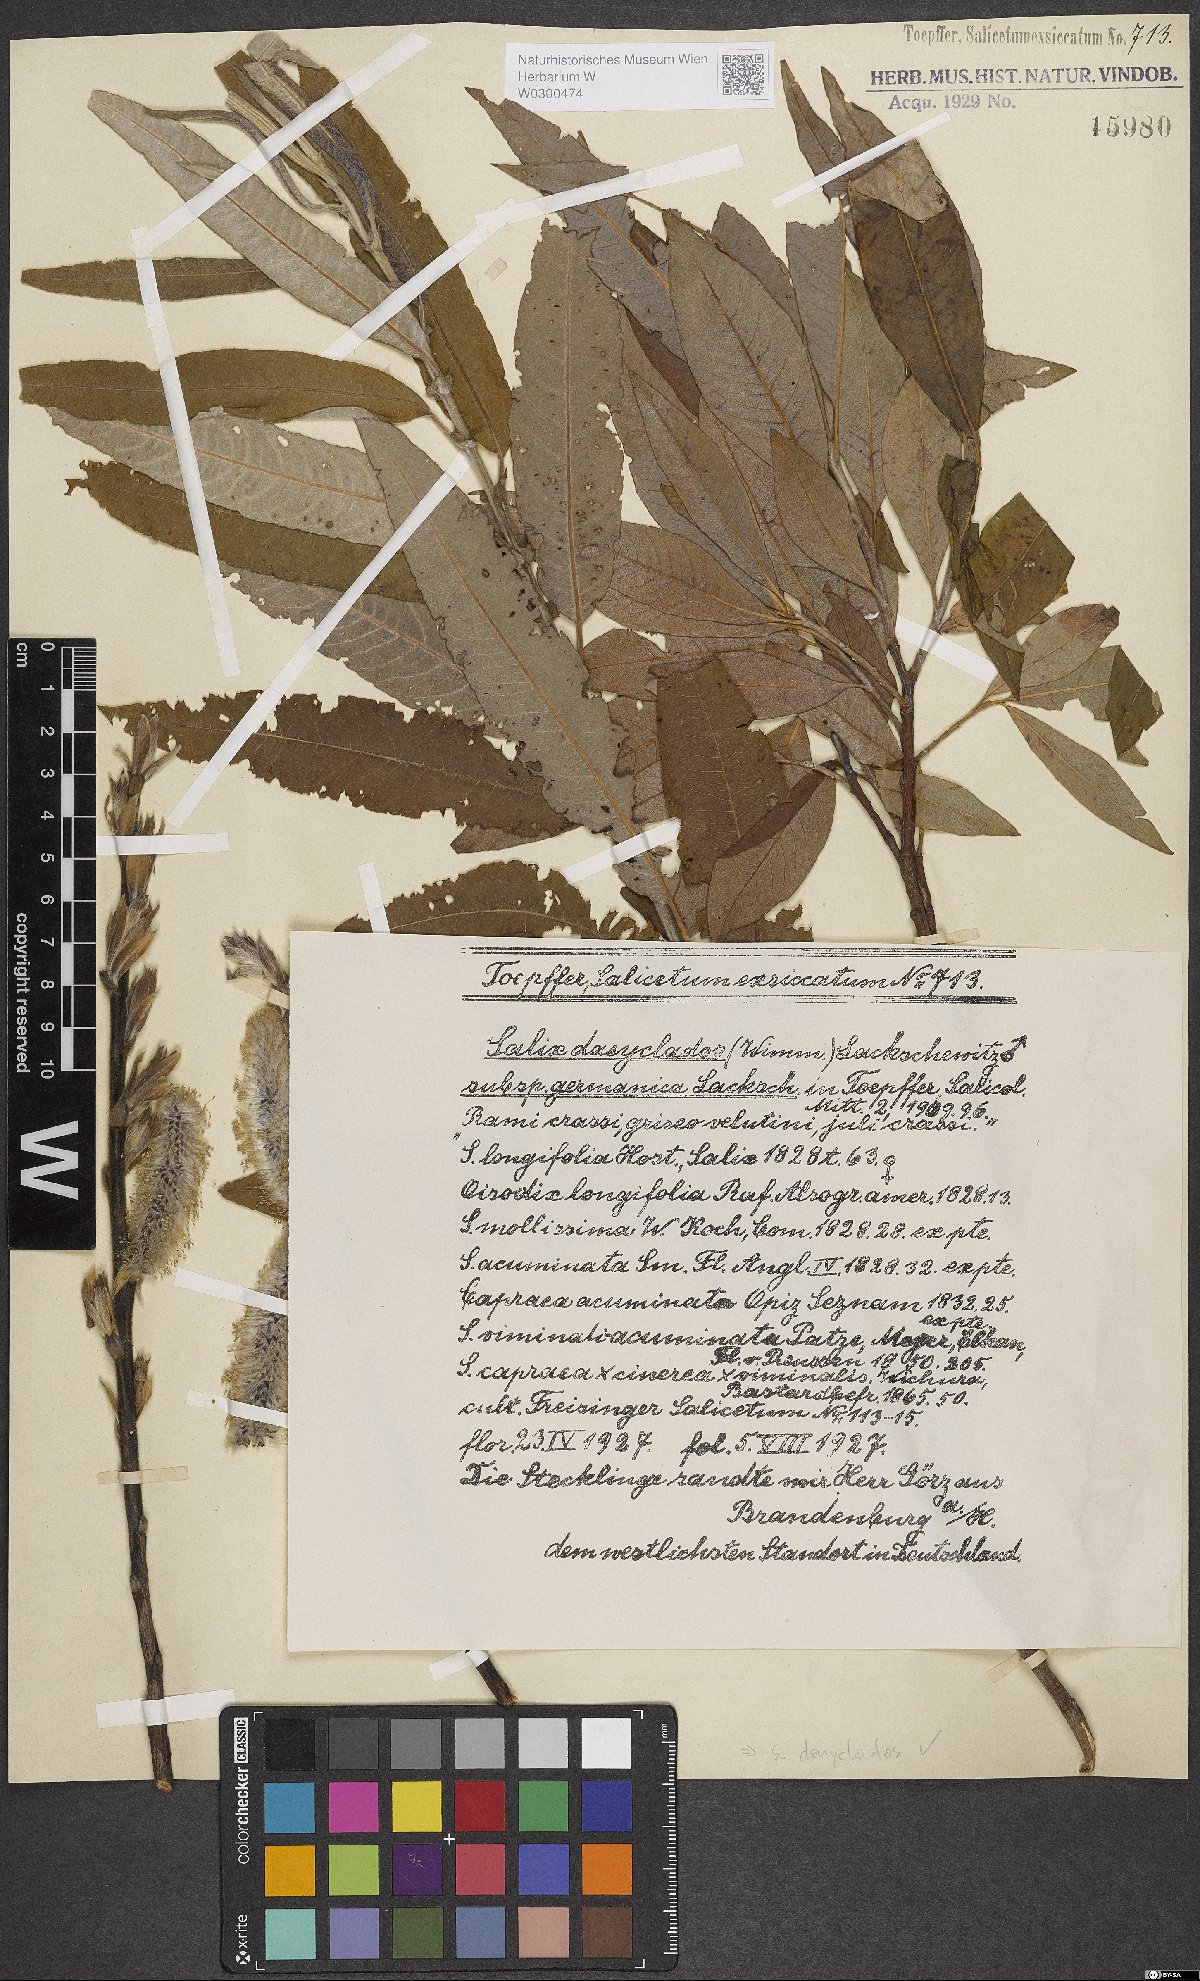 Toepffer, Salicetum exsiccatum No. 713.
Naturhistorisches Museum Wien
Herbarium W
W0300474
HERB. MUS. HIST. NATUR. VINDOB.
Acqu. 1929 No.
15980
cm 0 1 2 3 4 5 6 7 8 9 10
copyright reserved
W
Toepffer, Salicetum exsiccatum No 713.
Salix dasyclados (Wimm.) Lackschewitz ♂
subsp. germanica Lacksch. in Toepffer, Salicol.
Mitt. 2, 1909. 96.
"Rami crassi, griseo velutini, juli crassi."
S. longifolia Host., Salix 1828 t. 63. ♀
Oisodix longifolia Raf. Alsogr. amer. 1828. 13.
S. mollissima W. Koch, Com. 1828. 28. ex pte.
S. acuminata Sm. Fl. Angl. IV. 1828. 32. ex pte.
Capraea acuminata Opiz Seznam 1832. 25.
ex pte.
S. viminali-acuminata Patze, Meyer, Elkan,
Fl. v. Preussen 1850. 205.
S. capraea x cinerea x viminalis. Wichura,
Bastardbefr. 1865. 50.
cult. Freisinger Salicetum No. 113-15.
flor. 23. IV 1927. fol. 5. VIII 1927.
Die Stecklinge sandte mir Herr Görz aus
Brandenburg a./H.
dem westlichsten Standort in Deutschland.
=> S. dasyclados ✓
colorchecker CLASSIC
x-rite
mm
BY-SA